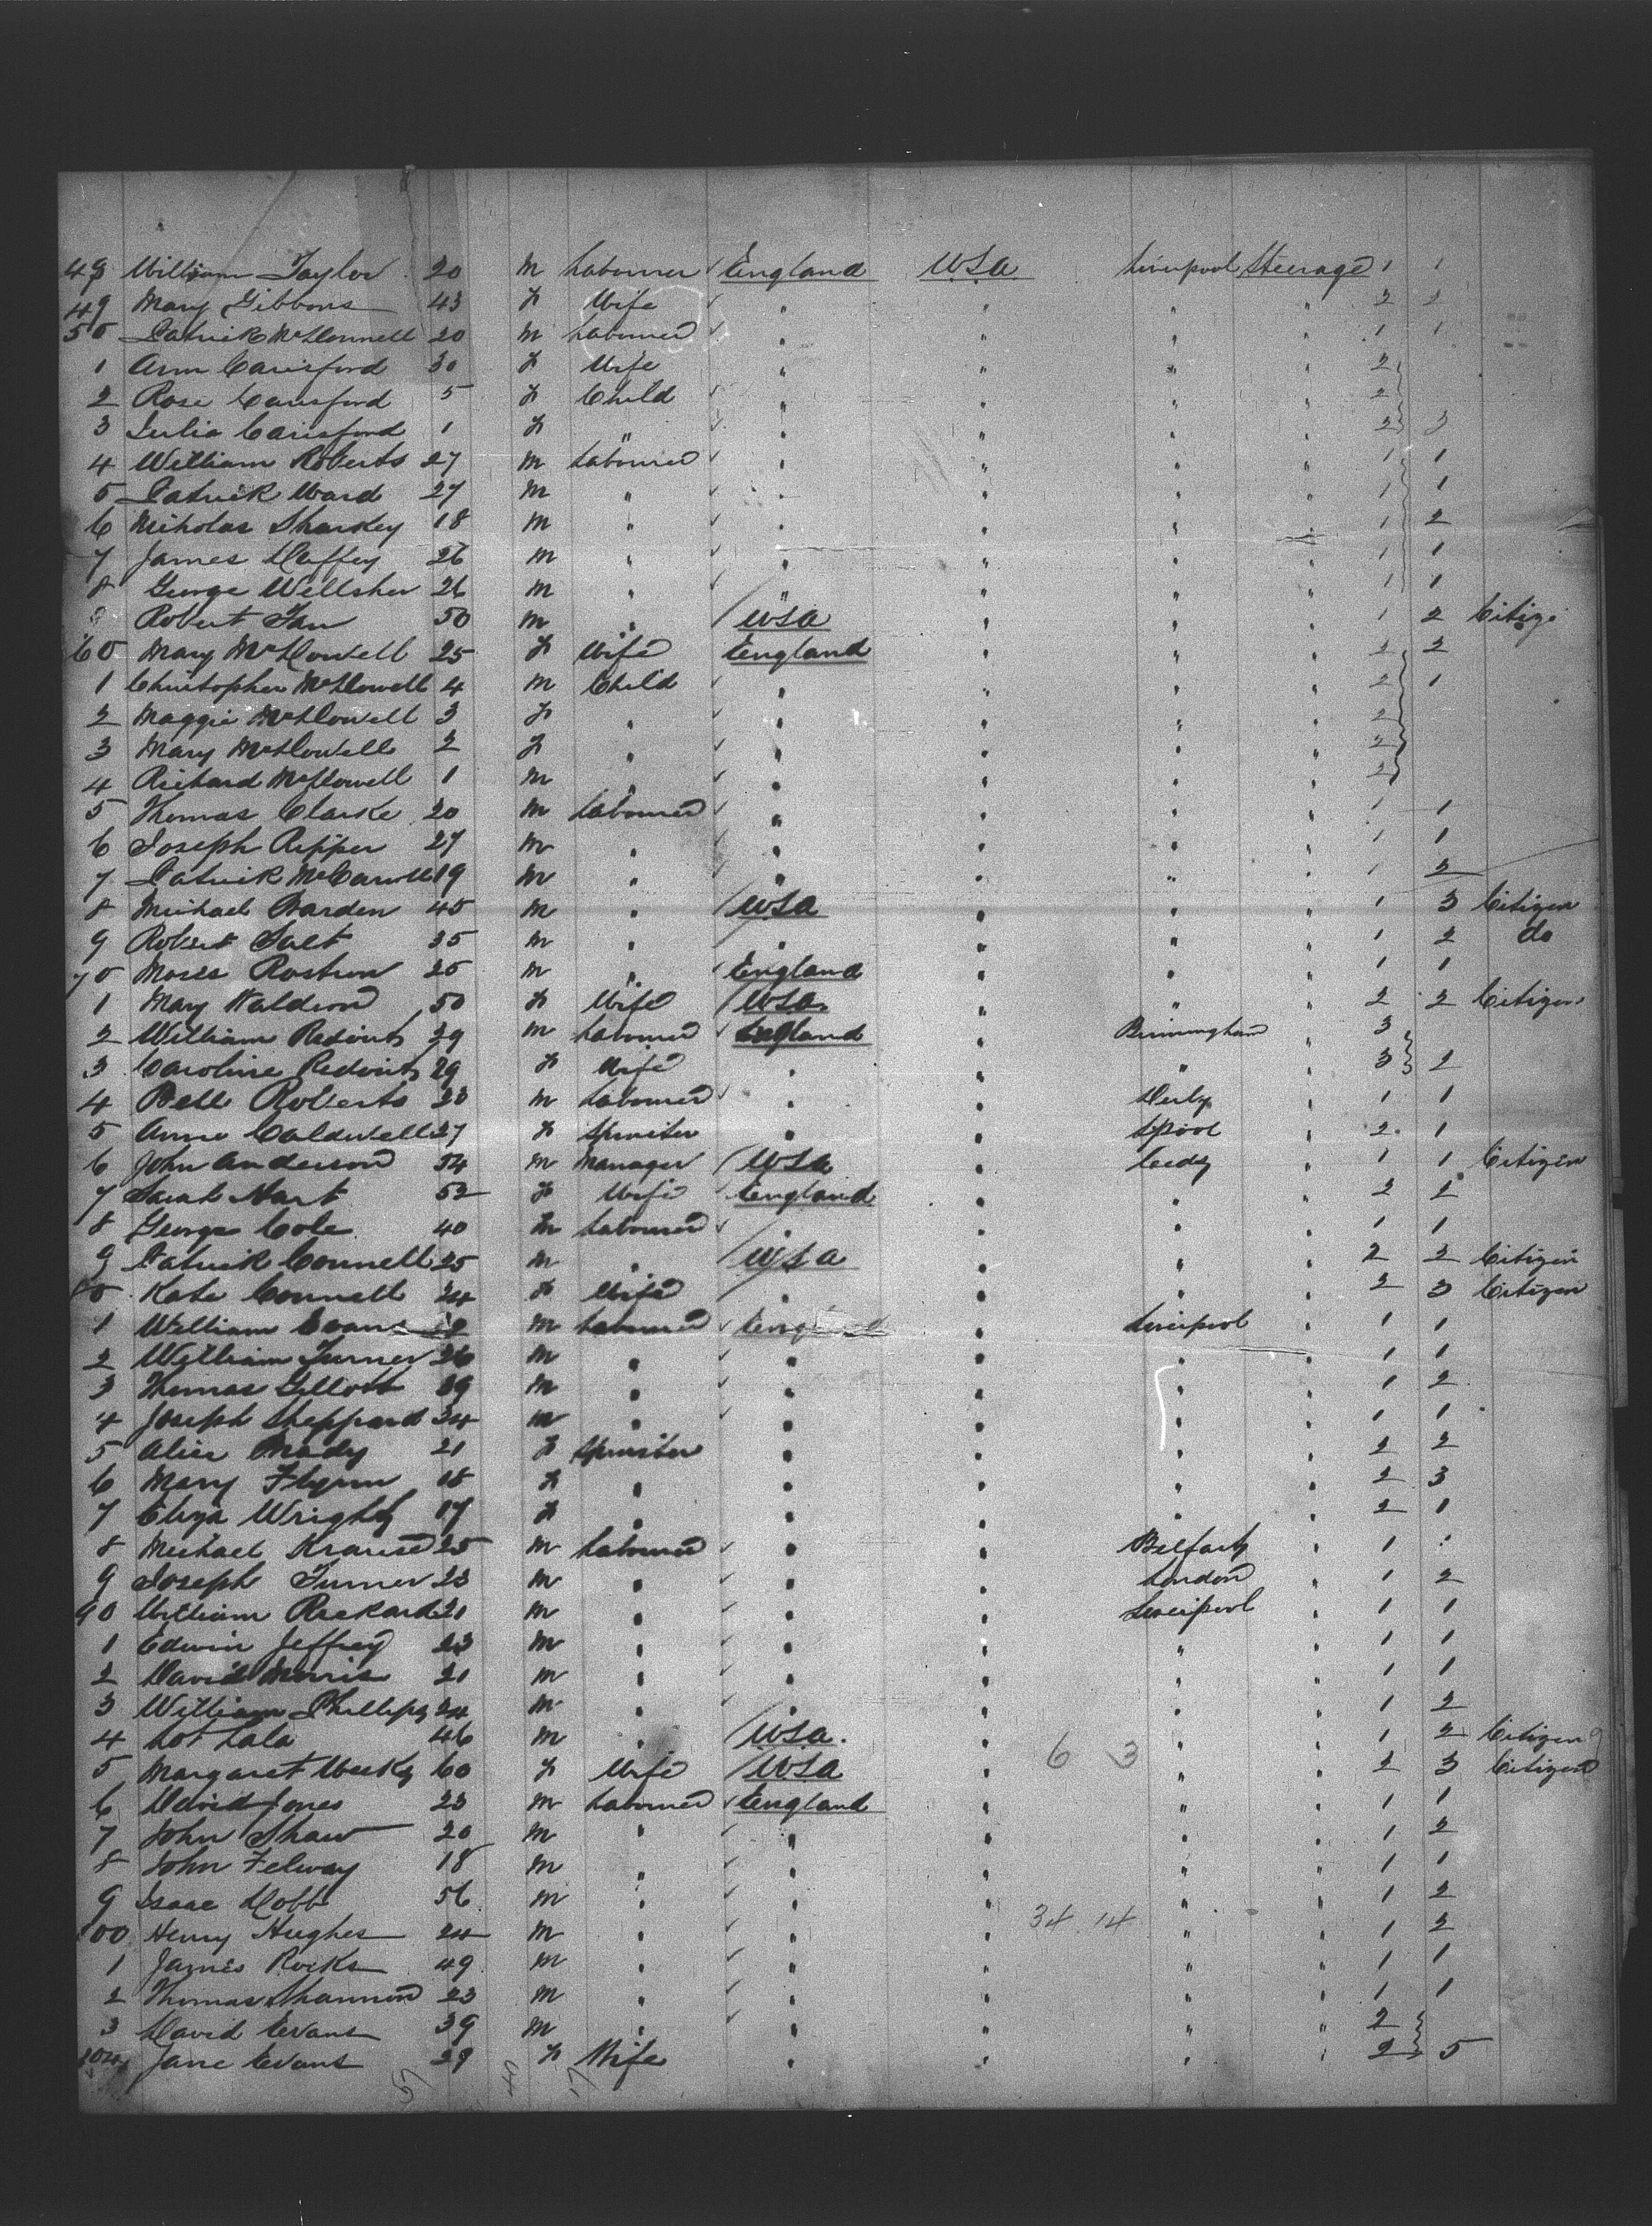 48 William Taylor 20 m Labourer England USA Liverpool Steerage 1 1
49 Mary Gibbons 43 f Wife " " " " 2 2
50 Patrick McDonnell 20 m Labourer " " " " 1 1
1 Ann Carisford 30 f Wife " " " " 2
2 Rose Carisford 5 f Child " " " " 2
3 Julia Carisford 1 f " " " " " 2 3
4 William Roberts 27 m Labourer " " " " 1 1
5 Patrick Ward 27 m " " " " " 1 1
6 Nicholas Sharkey 18 m " " " " " 1 2
7 James Daffey 26 m " " " " " 1 1
8 George Wellsher 26 m " " " " " 1 1
9 Robert 50 m " USA " " " 1 2
60 Mary McDowell 25 f Wife England " " " 2 2
1 Christopher McDowell 4 m Child " " " " 2 1
2 Maggie McDowell 3 f " " " " " 2
3 Mary McDowell 2 f " " " " " 2
4 Richard McDowell 1 m " " " " " 2
5 Thomas Clarke 20 m Labourer " " " " 1 1
6 Joseph Ripper 27 m " " " " " 1 1
7 Patrick McCarroll 19 m " " " " " 1 2
8 Michael Barden 45 m " USA " " " 1 3 Citizen
9 Robert Salt 35 m " " " " " 1 2 do
70 Moses Rostron 25 m " England " " " 1 1
1 Mary Waldron 50 f Wife USA " " " 2 2 Citizen
2 William 29 m Labourer England " Birmingham 3
3 Caroline 29 f Wife " " " 3 2
4 Bell Roberts 23 m Labourer " " Derby " 1 1
5 Anne Caldwell 27 f Spinster " " Lpool " 2 1
6 John Anderson 34 m Manager USA " Leeds " 1 1 Citizen
7 Sarah Hart 52 f Wife England " " " 2 2
8 George Cole 40 m Labourer " " " " 1 1
9 Patrick Connell 25 m " USA " " " 2 2 Citizen
80 Kate Connell 24 f Wife " " " " 2 3 Citizen
1 William Evans m Labourer England " Liverpool " 1 1
2 William Turner 26 m " " " " " 1 1
3 Thomas Gillott 39 m " " " " " 1 2
4 Joseph Sheppard 34 m " " " " " 1 1
5 Alice 21 f Spinster " " " " 2 2
6 Mary Flynn 18 f " " " " " 2 3
7 Eliza Wright 17 f " " " " " 2 1
8 Michael Krause 25 m Labourer " " Belfast " 1
9 Joseph Turner 23 m " " " London " 1 2
90 William Rickard 21 m " " " Liverpool " 1 1
1 Edwin Jeffrey 23 m " " " " " 1 1
2 David Morris 21 m " " " " " 1 1
3 William Phillips 24 m " " " " " 1 2
4 Lot Lala 46 m " USA. " " " 1 2 Citizen
5 Margaret Weeks 60 f Wife USA " 6 3 " " 2 3 Citizen
6 David Jones 23 m Labourer England " " " 1 1
7 John Shaw 20 m " " " " " 1 2
8 John Felway 18 m " " " " " 1 1
9 Isaac Dobb 56 m " " " " " 1 2
100 Henry Hughes 24 m " " " 34 14 " " 1 2
1 James Rocks 49 m " " " " " 1 1
2 Thomas Shannon 23 m " " " " " 1 1
3 David Evans 39 m " " " " " 2
104 Jane Evans 29 f Wife " " " " 2 5